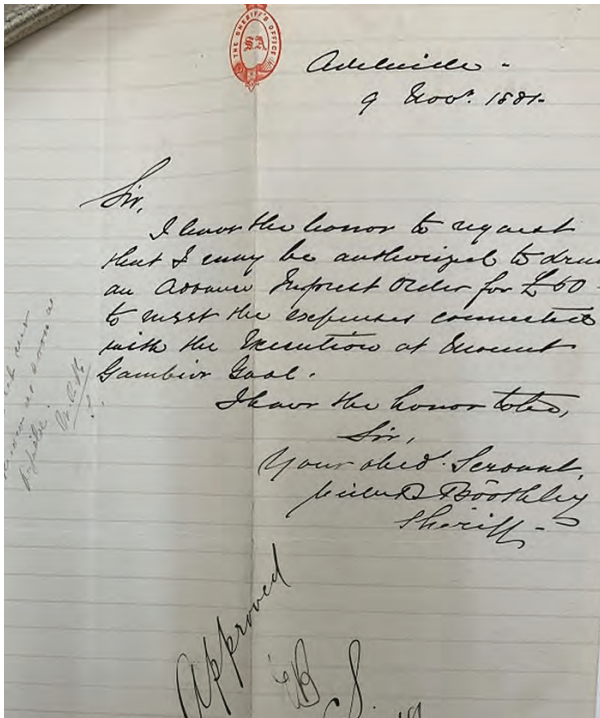 THE SHERIFF'S OFFICE
SA
Adelaide -
9 Nov. 1881-
Sir,
I have the honor to request
that I may be authorized to draw
an Advance Imprest Order for £50-
to meet the expenses connected
with the Execution at Mount
Gambier Gaol.
I have the honor to be,
Sir,
Your obed. Servant,
Boothby
Sheriff -
as soon as
Approved